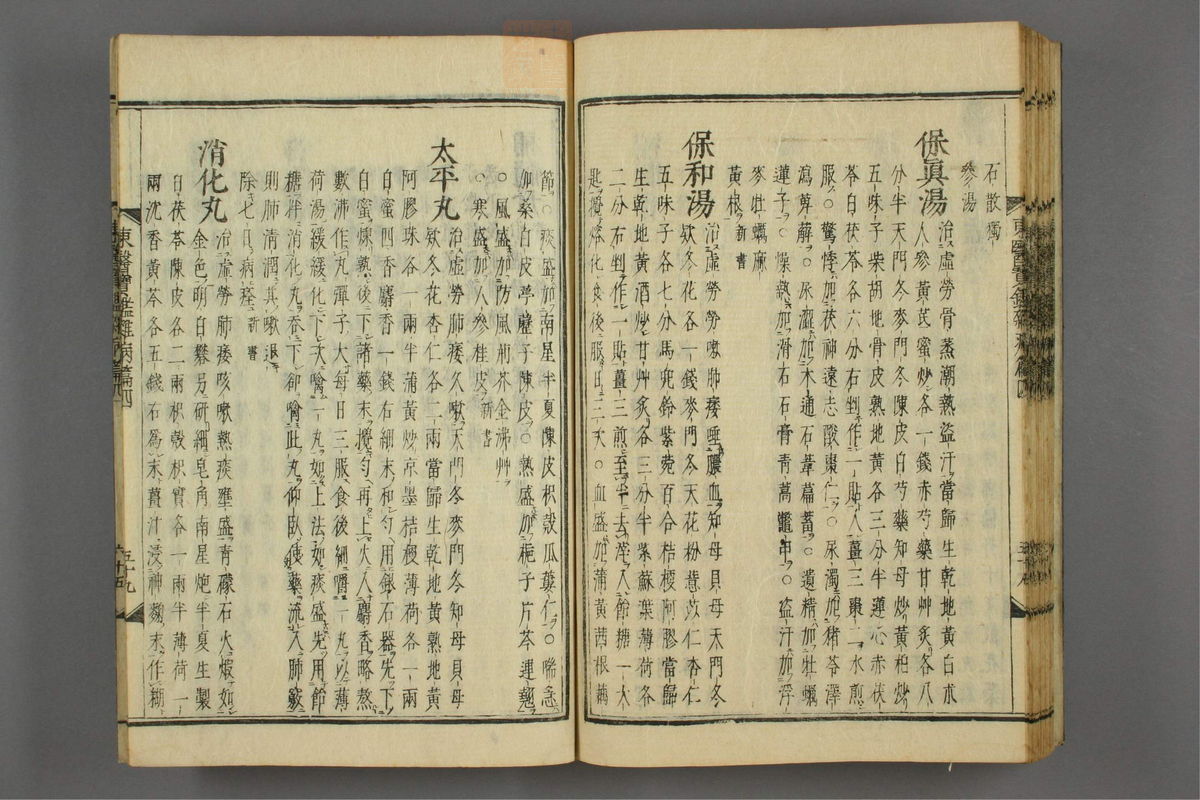 石散獨
參湯
保眞湯
治虛勞骨蒸潮熱盜汗當歸生乾地黃白朮
人參黃芪蜜炒各一錢赤芍藥甘艸炙各八
分半天門冬麥門冬陳皮白芍藥知母炒黃栢炒
五味子柴胡地骨皮熟地黃各三分半蓮心赤茯
苓白茯苓各六分右剉作一貼入薑三棗二水煎
服○驚悸加茯神遠志酸棗仁○尿濁加猪苓澤
瀉萆薢○尿澀加木通石葦萹蓄○遺精加牡蠣
蓮子○燥熱加滑石石膏靑蒿鼈甲○盜汗加浮
麥牡蠣麻
黃根新書
保和湯
治虛勞勞嗽肺痿唾膿血知母貝母天門冬
欵冬花各一錢麥門冬天花粉薏苡仁杏仁
五味子各七分馬兜鈴紫菀百合桔梗阿膠當歸
生乾地黃酒炒甘艸炙各三分半紫蘇葉薄荷各
二分右剉作一貼薑三煎至半去滓入飴糖一大
匙攪熔化食後服日二次○血盛加蒲黃茜根藕
節○痰盛加南星半夏陳皮枳殼瓜蔞仁○喘急
加桑白皮葶藶子陳皮○熱盛加梔子片芩連翹
○風盛加防風荊芥金沸艸
○寒盛加人參桂皮新書
太平丸
治虛勞肺痿久嗽天門冬麥門冬知母貝母
欵冬花杏仁各二兩當歸生乾地黃熟地黃
阿膠珠各一兩半蒲黃炒京墨桔梗薄荷各一兩
白蜜四香麝香一錢右細末和勻用銀石器先下
白蜜煉熟後下諸藥末攪勻再上火入麝香略熬
數沸作丸彈子大每日三服食後細嚼一丸以薄
荷湯緩緩化下次噙一丸如上法如痰盛先用飴
糖拌消化丸呑下卻噙此丸仰臥使藥流入肺竅
則肺淸潤其嗽退
除七日病痊新書
消化丸
治虛勞肺痿咳嗽熱痰壅盛靑礞石火煆如
金色明白礬另硏細皂角南星炮半夏生製
白茯苓陳皮各二兩枳殼枳實各一兩半薄荷一
兩沈香黃芩各五錢右爲末薑汁浸神麴末作糊
東醫寶鑑雜病篇四
五十九